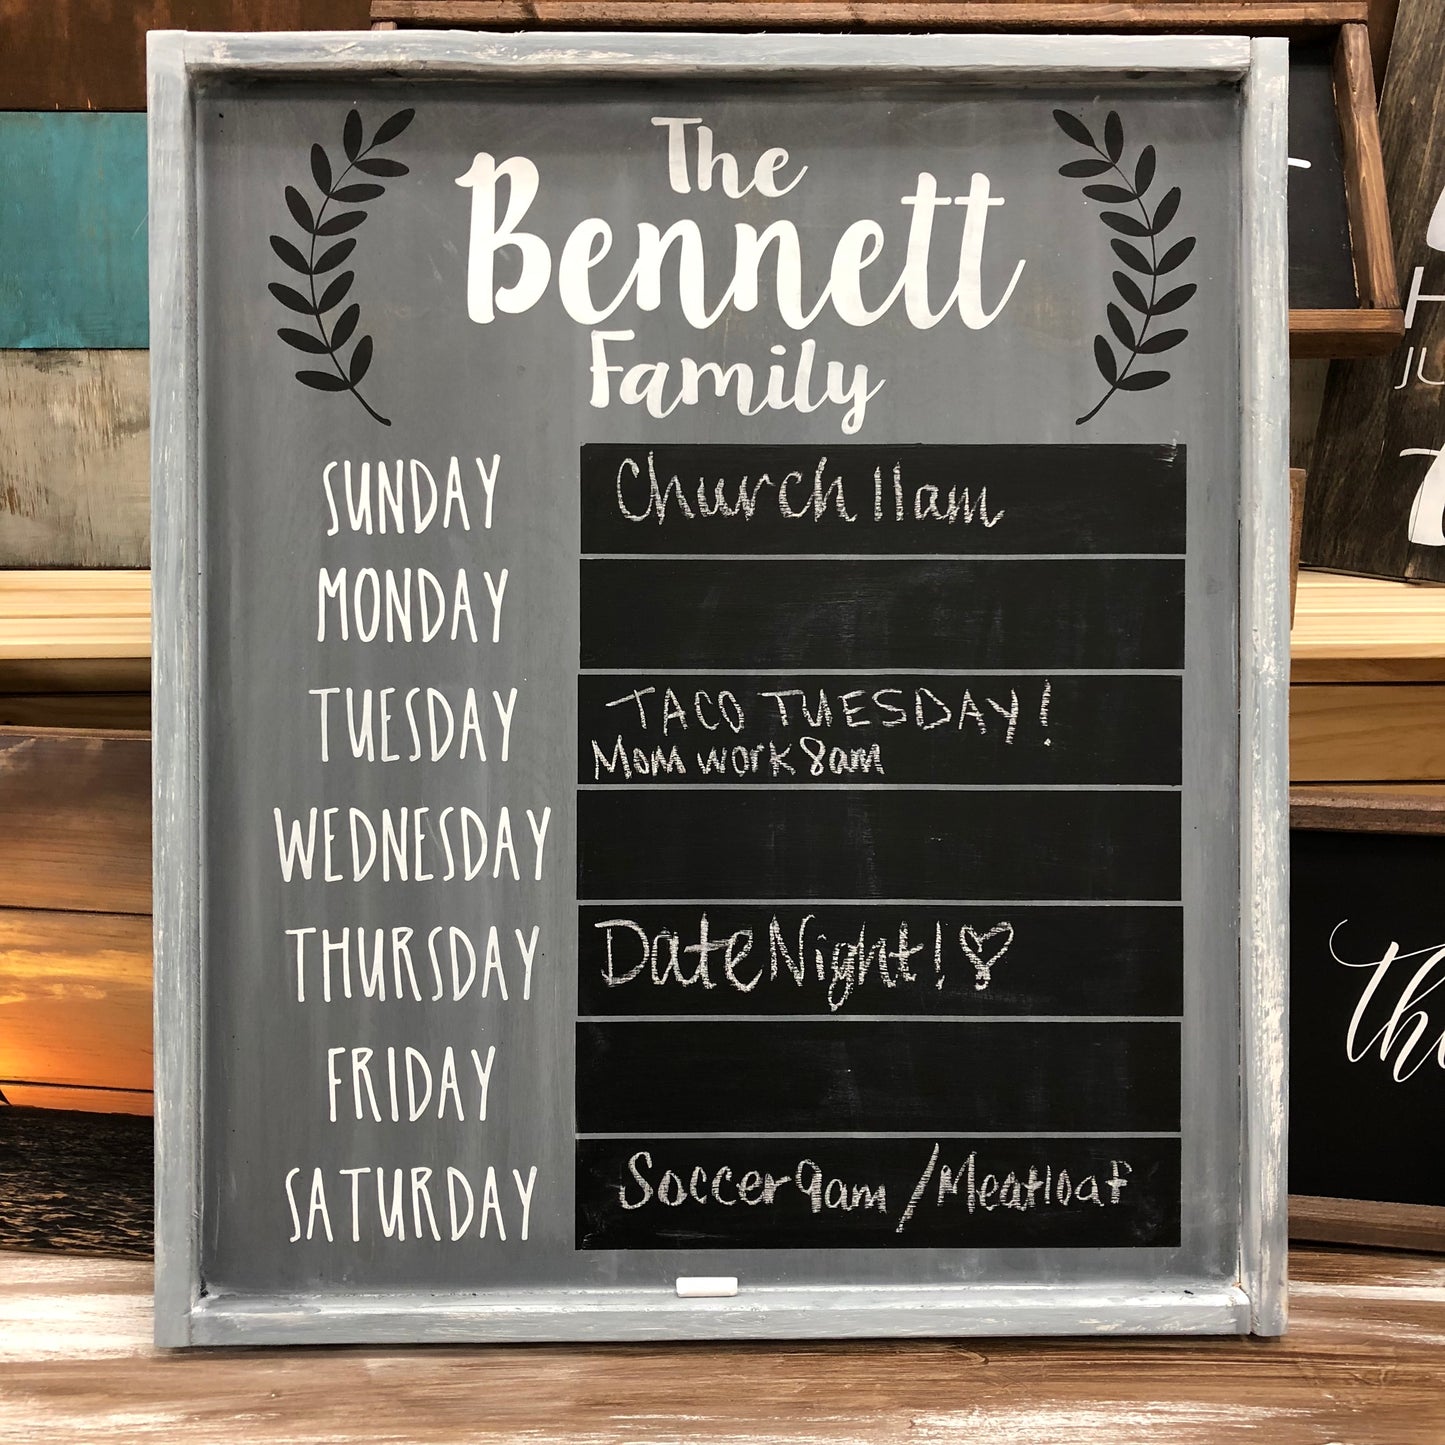 The
Bennett
Family
SUNDAY Church 11am
MONDAY
TUESDAY TACO TUESDAY!
Mom work 8am
WEDNESDAY
THURSDAY Date Night! ♡
FRIDAY
SATURDAY Soccer 9am / Meatloaf
H
JU
th